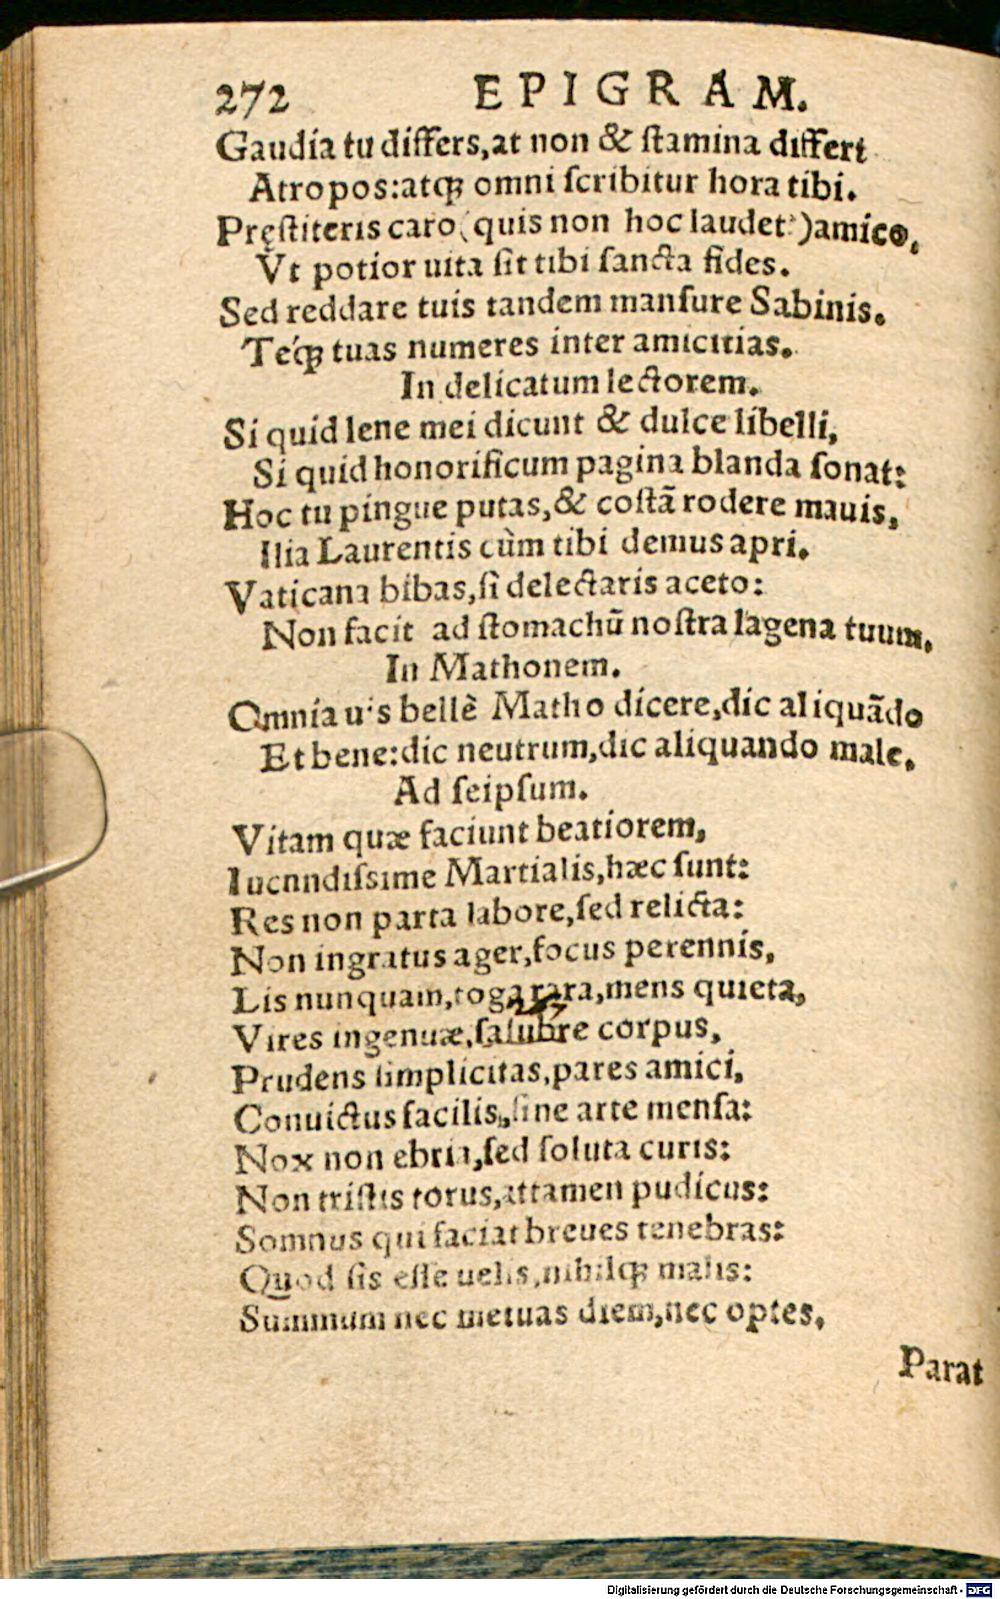 272 EPIGRAM.
Gaudia tu differs,at non & ſtamina differt
Atropos:atqꝫ omni ſcribitur hora tibi.
Pręſtiteris caro(quis non hoc laudet?)amico,
Vt potior uita ſit tibi ſancta fides.
Sed reddare tuis tandem manſure Sabinis.
Teqꝫ tuas numeres inter amicitias.
In delicatum lectorem.
Si quid lene mei dicunt & dulce libelli,
Si quid honorificum pagina blanda ſonat:
Hoc tu pingue putas,& coſtã rodere mauis,
Ilia Laurentis cùm tibi demus apri.
Vaticana bibas,ſi delectaris aceto:
Non facit ad ſtomachũ noſtra lagena tuum.
In Mathonem.
Omnia uis bellè Matho dicere,dic aliquãdo
Et bene:dic neutrum,dic aliquando male.
Ad ſeipſum.
Vitam quæ faciunt beatiorem,
Iucundiſsime Martialis,hæc ſunt:
Res non parta labore,ſed relicta:
Non ingratus ager,focus perennis,
Lis nunquam,toga rara,mens quieta,
Vires ingenuæ,ſalubre corpus,
Prudens ſimplicitas,pares amici,
Conuictus facilis,ſine arte menſa:
Nox non ebria,ſed ſoluta curis:
Non triſtis torus,attamen pudicus:
Somnus qui faciat breues tenebras:
Quod ſis eſſe uelis,nihilqꝫ malis:
Summum nec metuas diem,nec optes.
Parat
Digitalisierung gefördert durch die Deutsche Forschungsgemeinschaft - DFG